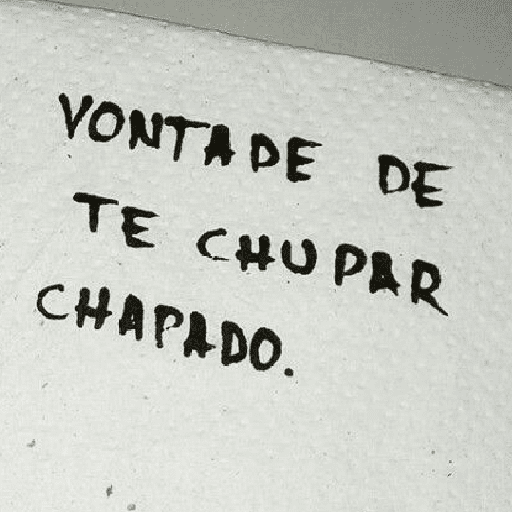 VONTADE DE
TE CHUPAR
CHAPADO.